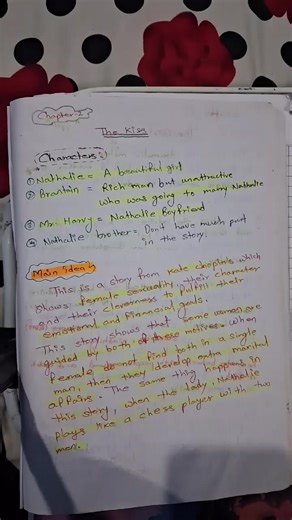 Chapter-2
The Kiss
Characters:
① Nathalie = A beautiful girl
② Brantin = Rich man but unattractive
who was going to marry Nathalie
③ Mr. Harvy = Nathalie Boyfriend
④ Nathalie brother = Don't have much part
in the story.
Main idea
This is a story from Kate chopin's which
shows female sexuality, their character
and their cleverness to fulfill their
emotional and financial goals.
This story shows that some women are
guided by both of these motives. When
female do not find both in a single
man, then they develop extra marital
affairs. The same thing happens in
this story, when the lady, Nathalie
plays like a chess player with two
men.